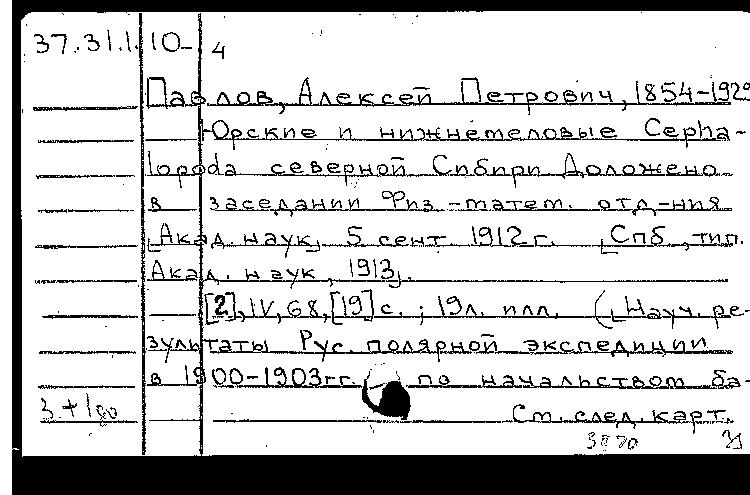 37.31.1.10-4
Павлов, Алексей Петрович, 1854-1929
Юрские и нижнемеловые Cepha-
lopoda северной Сибири Доложено
в заседании Физ.-матем. отд-ния
[Акад. наук] 5 сент. 1912 г. [Спб, тип.
Акад. наук, 1913].
[2], IV, 68, [19] с. ; 19л. илл. ([Науч. ре-
зультаты Рус. полярной экспедиции
в 1900-1903гг. по начальством ба-
См. след. карт.